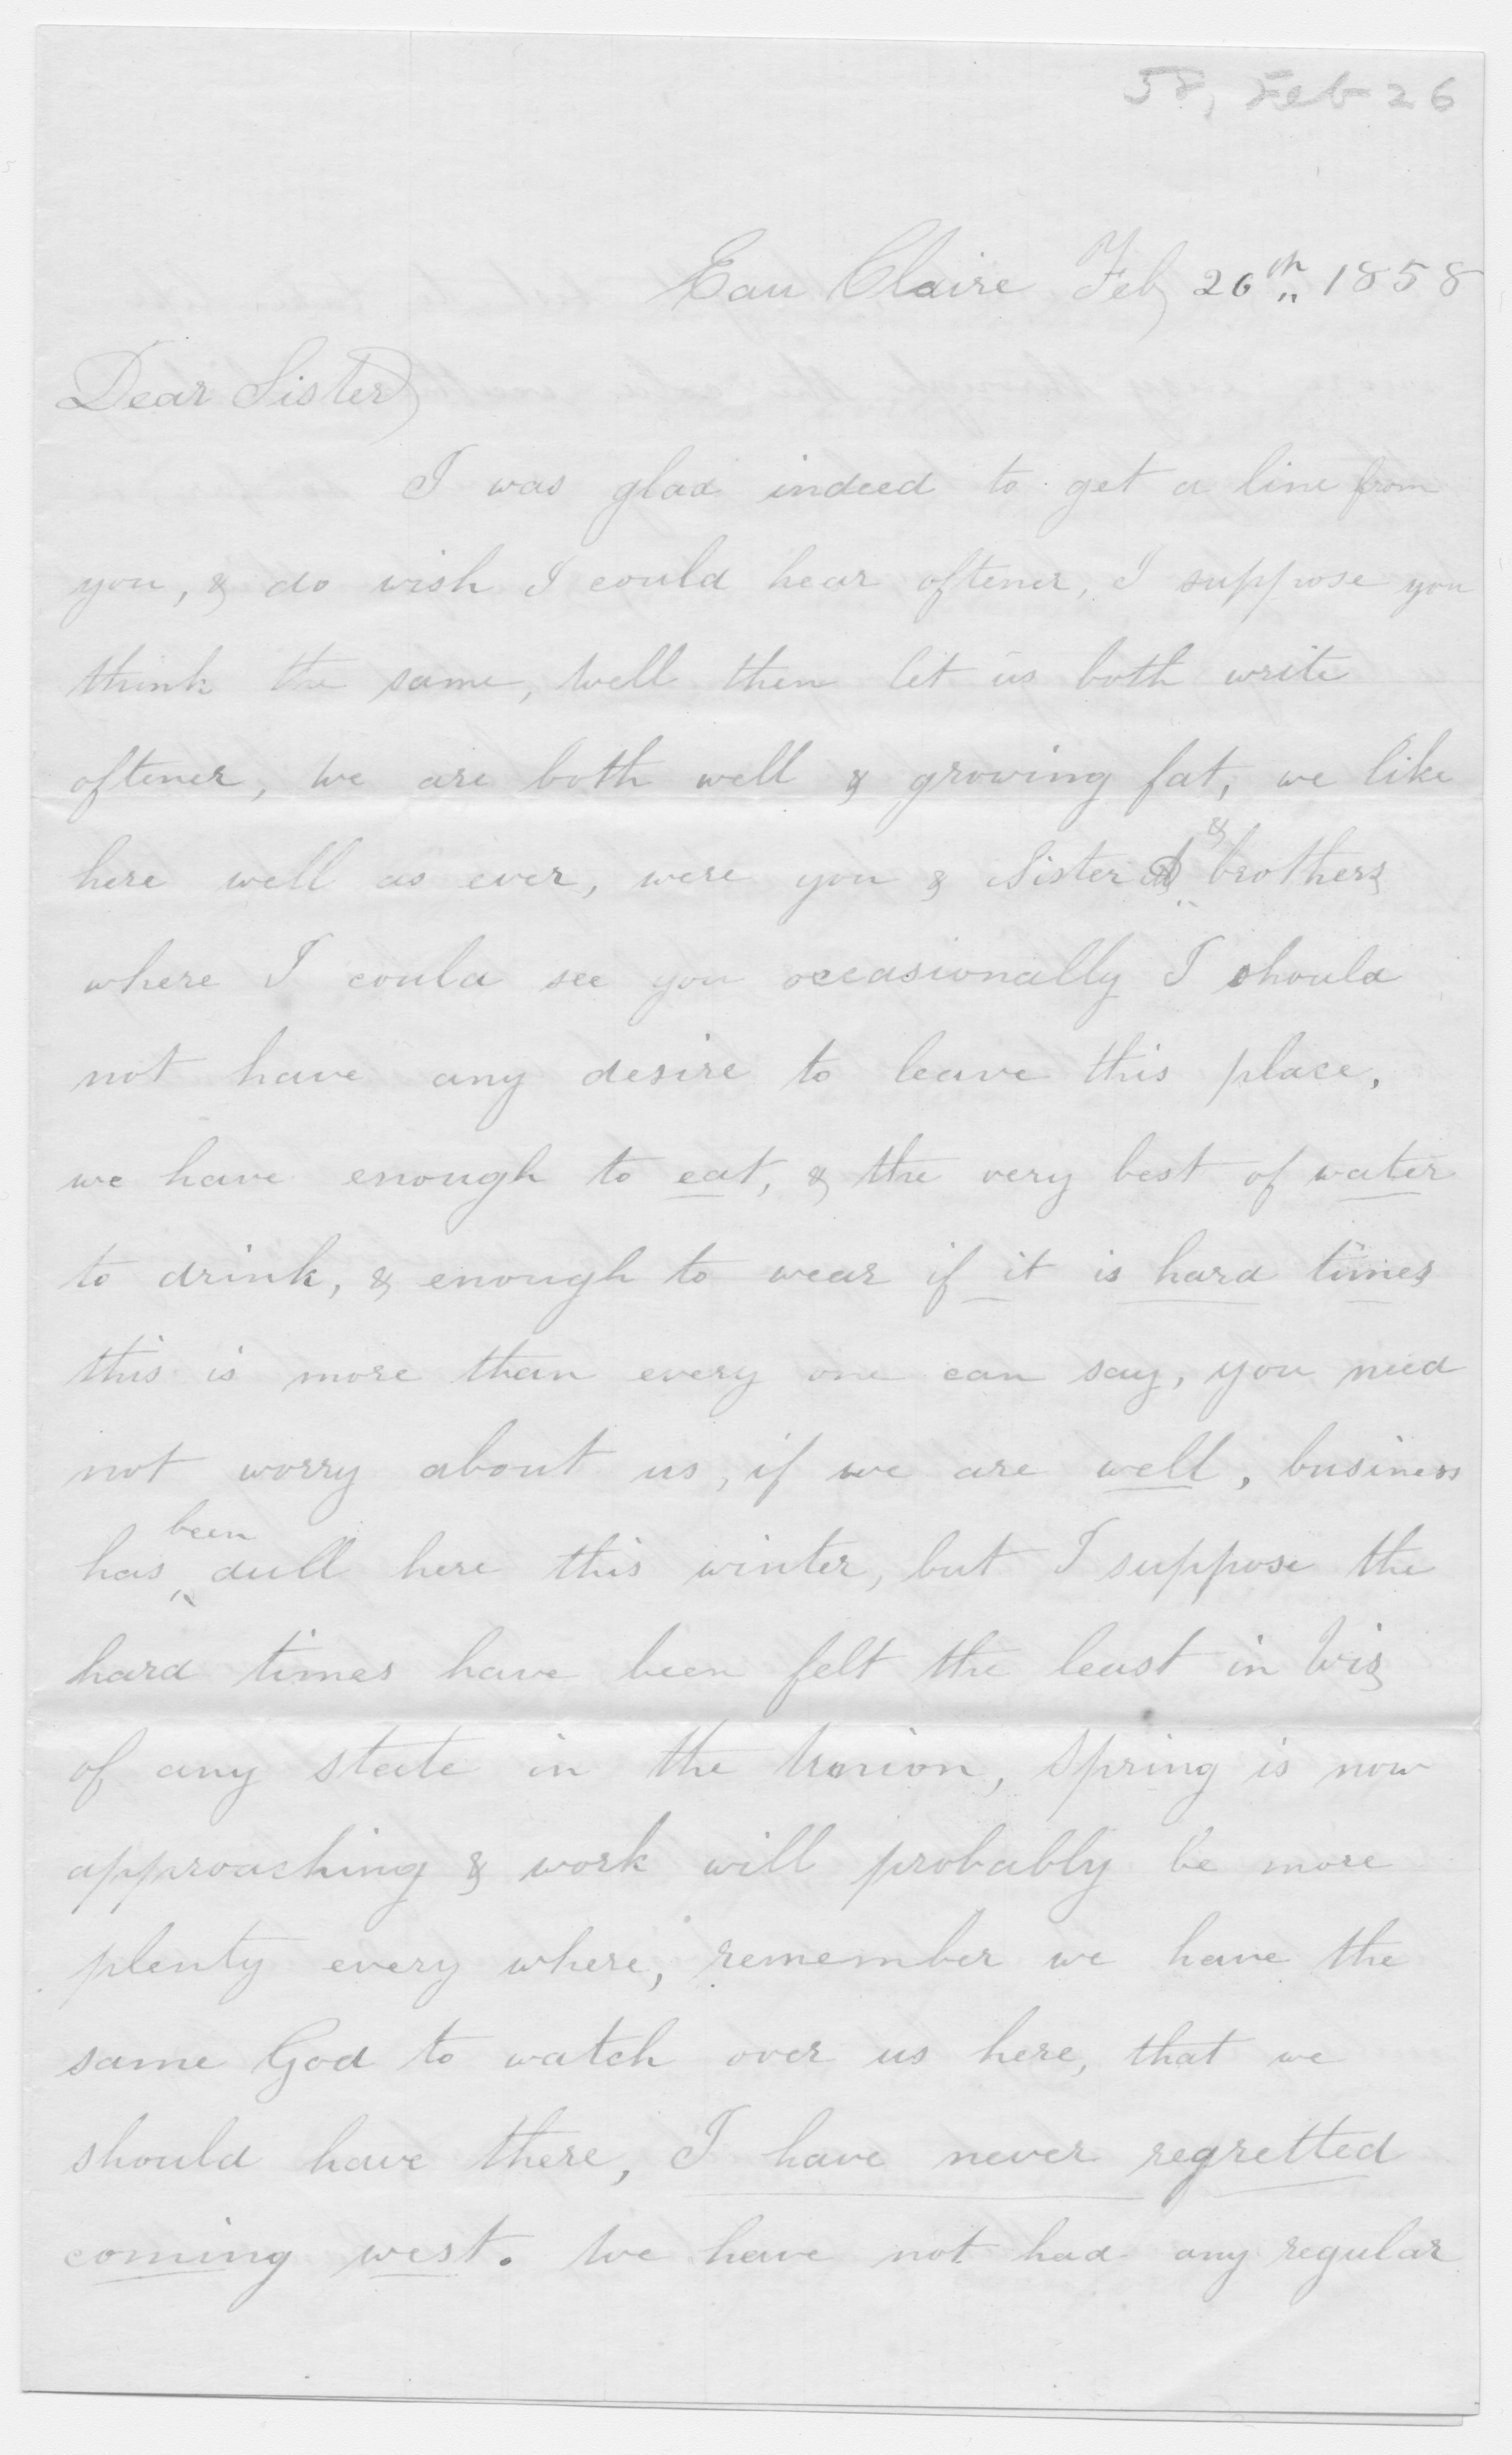 58, Feb 26
Eau Claire Feb 26th 1858
Dear Sister
I was glad indeed to get a line from
you, & do wish I could hear oftener, I suppose you
think the same, Well then let us both write
oftener, We are both well & growing fat, we like
here well as ever, were you & Sister & brothers
where I could see you occasionally I should
not have any desire to leave this place,
we have enough to eat, & the very best of water
to drink, & enough to wear if it is hard times
this is more than every one can say, you need
not worry about us, if we are well, business
has been dull here this winter, but I suppose the
hard times have been felt the least in Wis
of any state in the Union, Spring is now
approaching & work will probably be more
plenty every where, remember we have the
same God to watch over us here, that we
should have there, I have never regretted
coming west. We have not had any regular